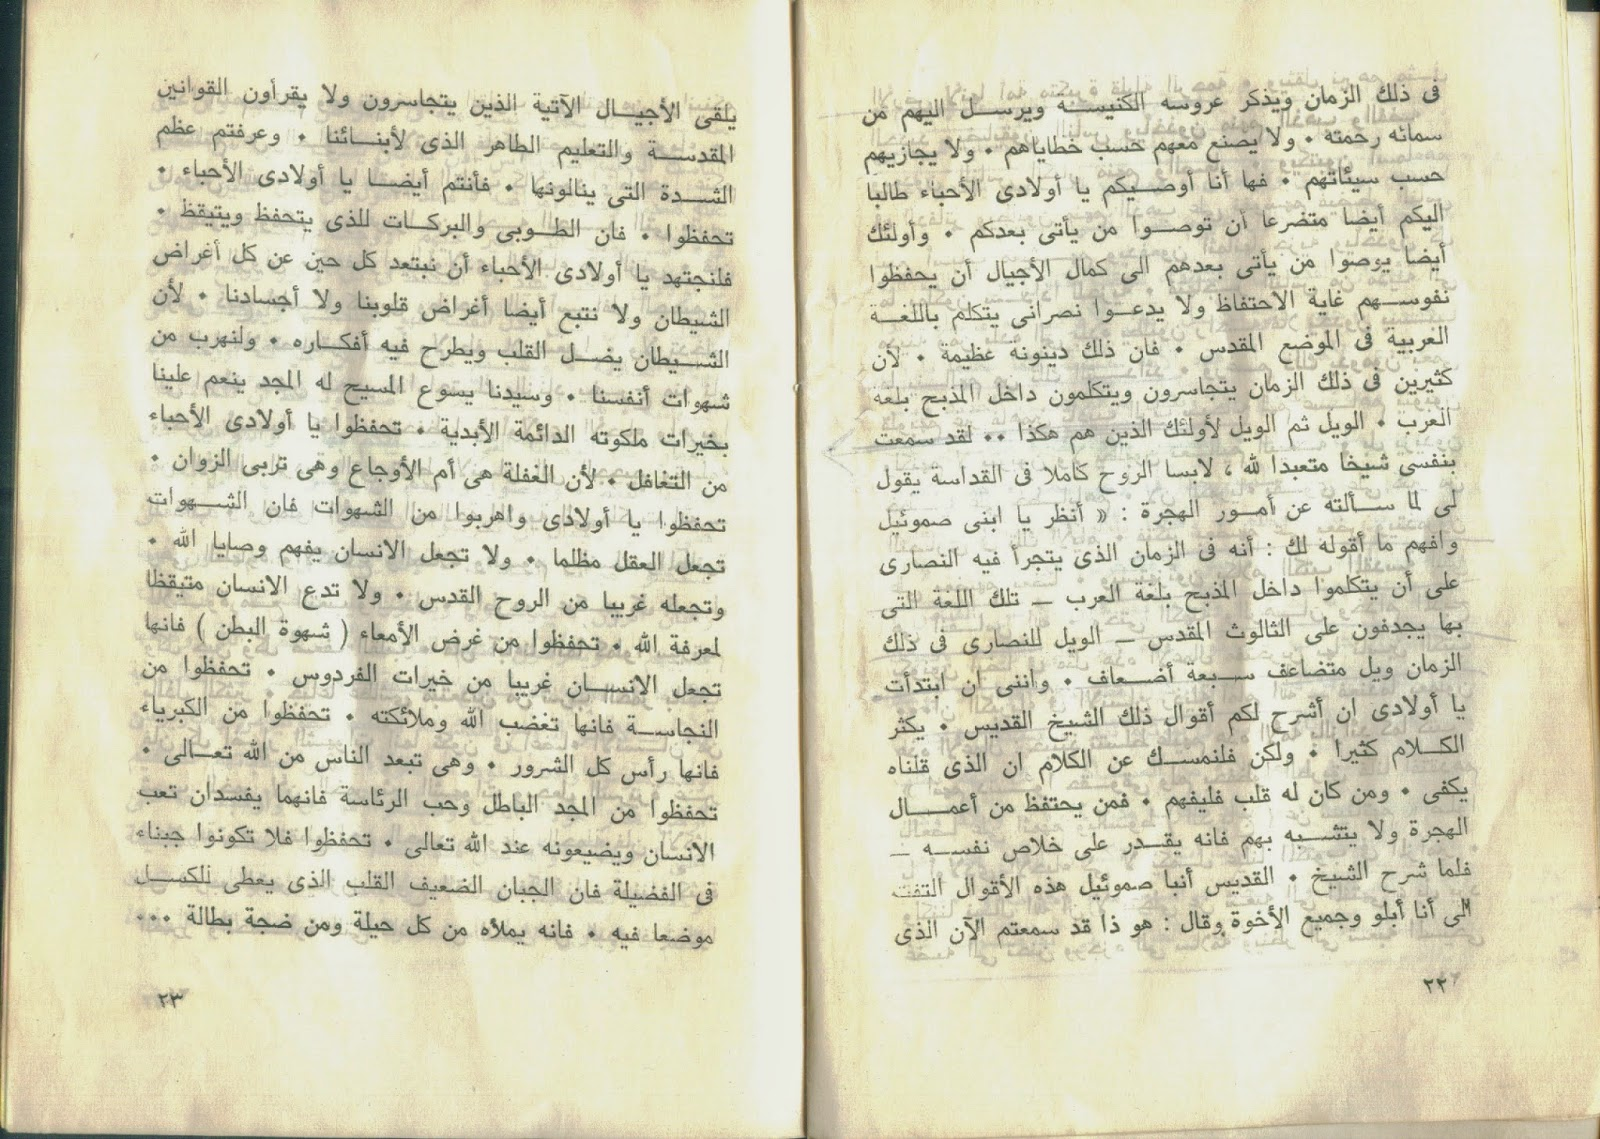 فى ذلك الزمان ويذكر عروسه الكنيسه ويرسل اليهم من
سمائه رحمته . ولا يصنع معهم حسب خطاياهم . ولا يجازيهم
حسب سيئاتهم . فها أنا أوصيكم يا أولادى الأحباء طالبا
اليكم أيضا متضرعا أن توصوا من يأتى بعدكم . وأولئك
أيضا يوصوا من يأتى بعدهم الى كمال الأجيال أن يحفظوا
نفوسهم غاية الاحتفاظ ولا يدعوا نصرانى يتكلم باللغة
العربية فى الموضع المقدس . فان ذلك دينونة عظيمة . لأن
كثيرين فى ذلك الزمان يتجاسرون ويتكلمون داخل المذبح بلغة
العرب . الويل ثم الويل لأولئك الذين هم هكذا .. لقد سمعت
بنفسى شيخا متعبدا لله ، لابسا الروح كاملا فى القداسة يقول
لى لما سألته عن أمور الهجرة : « أنظر يا ابنى صموئيل
وافهم ما أقوله لك : أنه فى الزمان الذى يتجرأ فيه النصارى
على أن يتكلموا داخل المذبح بلغة العرب — تلك اللغة التى
بها يجدفون على الثالوث المقدس — الويل للنصارى فى ذلك
الزمان ويل متضاعف سبعة أضعاف . واننى ان ابتدأت
يا أولادى ان أشرح لكم أقوال ذلك الشيخ القديس . يكثر
الكلام كثيرا . ولكن فلنمسك عن الكلام ان الذى قلناه
يكفى . ومن كان له قلب فليفهم . فمن يحتفظ من أعمال
الهجرة ولا يتشبه بهم فانه يقدر على خلاص نفسه —
فلما شرح الشيخ . القديس أنبا صموئيل هذه الأقوال التفت
الى أنا أبلو وجميع الأخوة وقال : هو ذا قد سمعتم الآن الذى
٢٢
يلقى الأجيال الآتية الذين يتجاسرون ولا يقرأون القوانين
المقدسة والتعليم الطاهر الذى لأبنائنا . وعرفتم عظم
الشدة التى ينالونها . فأنتم أيضا يا أولادى الأحباء .
تحفظوا . فان الطوبى والبركات للذى يتحفظ ويتيقظ .
فلنجتهد يا أولادى الأحباء أن نبتعد كل حين عن كل أغراض
الشيطان ولا نتبع أيضا أغراض قلوبنا ولا أجسادنا . لأن
الشيطان يضل القلب ويطرح فيه أفكاره . ولنهرب من
شهوات أنفسنا . وسيدنا يسوع المسيح له المجد ينعم علينا
بخيرات ملكوته الدائمة الأبدية . تحفظوا يا أولادى الأحباء
من التغافل . لأن الغفلة هى أم الأوجاع وهى تربى الزوان .
تحفظوا يا أولادى واهربوا من الشهوات فان الشهوات
تجعل العقل مظلما . ولا تجعل الانسان يفهم وصايا الله .
وتجعله غريبا من الروح القدس . ولا تدع الانسان متيقظا
لمعرفة الله . تحفظوا من غرض الأمعاء ( شهوة البطن ) فانها
تجعل الانسان غريبا من خيرات الفردوس . تحفظوا من
النجاسة فانها تغضب الله وملائكته . تحفظوا من الكبرياء
فانها رأس كل الشرور . وهى تبعد الناس من الله تعالى .
تحفظوا من المجد الباطل وحب الرئاسة فانهما يفسدان تعب
الانسان ويضيعونه عند الله تعالى . تحفظوا فلا تكونوا جبناء
فى الفضيلة فان الجبان الضعيف القلب الذى يعطى للكسل
موضعا فيه . فانه يملأه من كل حيلة ومن ضجة بطالة ...
٢٣